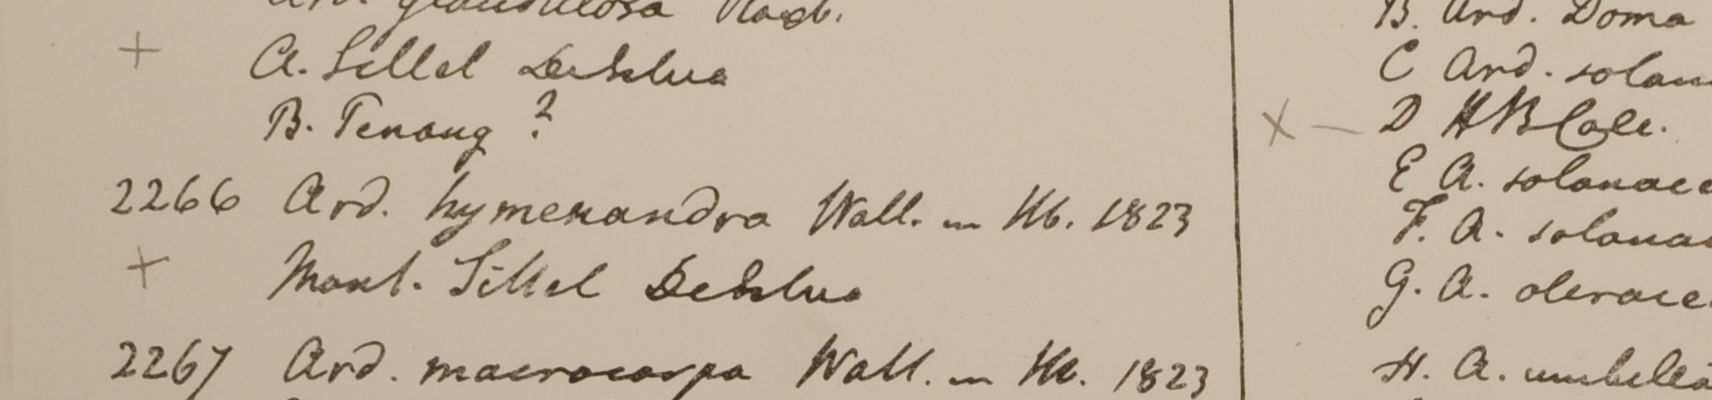 Ard. glandulosa Roxb.
+ A. Sillet DeSilva
B. Penang ?
2266 Ard. hymenandra Wall. in Hb. 1823
+ Mont. Sillet DeSilva
2267 Ard. macrocarpa Wall. in Hb. 1823
B. Ard. Doma
C Ard. solan
X — D HBCalc.
E A. solanace
F. A. solana
G. A. olerace
H. A. umbella